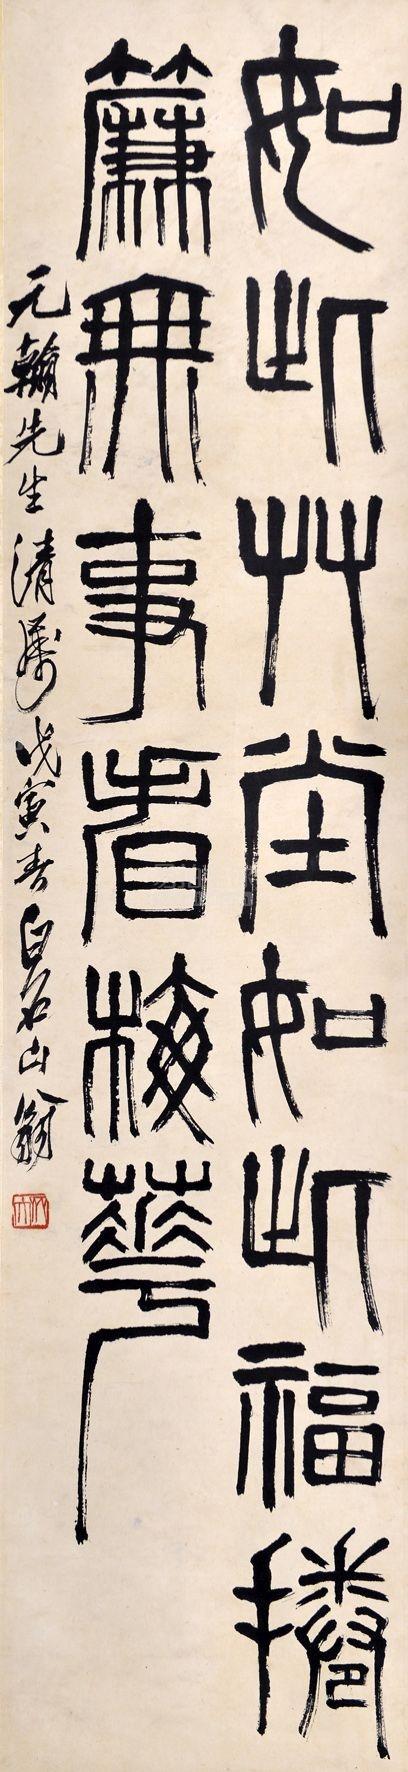 如此艸堂如此福捲
簾無事看梅華
元翰先生清屬戊寅春白石山翁